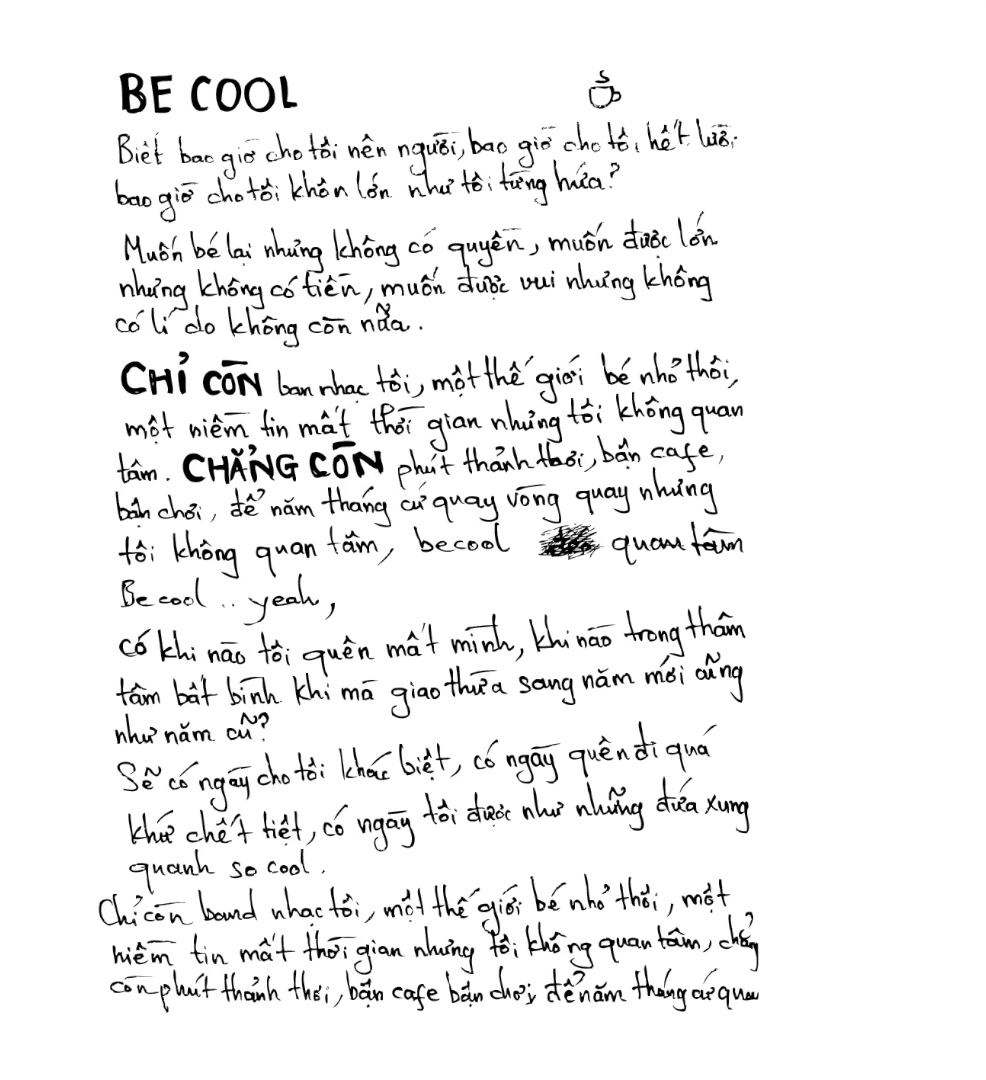 BE COOL
Biết bao giờ cho tôi nên người, bao giờ cho tôi hết lười
bao giờ cho tôi khôn lớn như tôi từng hứa?
Muốn bé lại nhưng không có quyền, muốn được lớn
nhưng không có tiền, muốn được vui nhưng không
có lí do không còn nữa.
CHỈ CÒN ban nhạc tôi, một thế giới bé nhỏ thôi,
một niềm tin mất thời gian nhưng tôi không quan
tâm. CHẲNG CÒN phút thảnh thơi, bận cafe,
bận chơi, để năm tháng cứ quay vòng quay nhưng
tôi không quan tâm, becool quan tâm
Be cool .. yeah,
có khi nào tôi quên mất mình, khi nào trong thâm
tâm bất bình khi mà giao thừa sang năm mới cũng
như năm cũ?
Sẽ có ngày cho tôi khác biệt, có ngày quên đi quá
khứ chết tiệt, có ngày tôi được như những đứa xung
quanh so cool.
Chỉ còn band nhạc tôi, một thế giới bé nhỏ thôi, một
niềm tin mất thời gian nhưng tôi không quan tâm, chẳng
còn phút thảnh thơi, bận cafe bận chơi, để năm tháng cứ quay